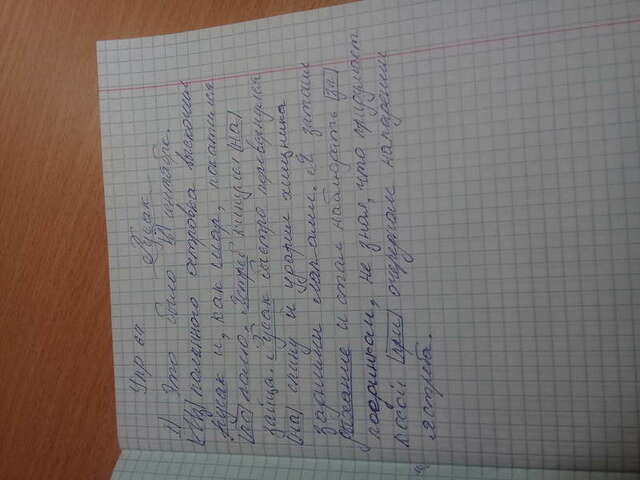 Упр 64.
Русак
1) Это было в сентябре.
Из полынного островка выскочил
русак и, как шар, покатился
по полю. Ястреб кинулся на
зайца. Русак быстро перевернулся
на спину и ударил хищника
задними лапами. Я затаил
дыхание и стал наблюдать за
поединкам, не зная, что придумает
косой при очередном нападении
ястреба.